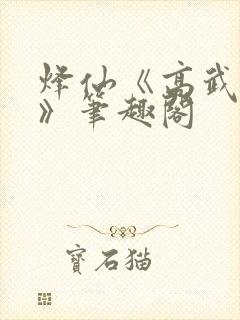 烽仙《高武
》筆趣閣
寶石猫